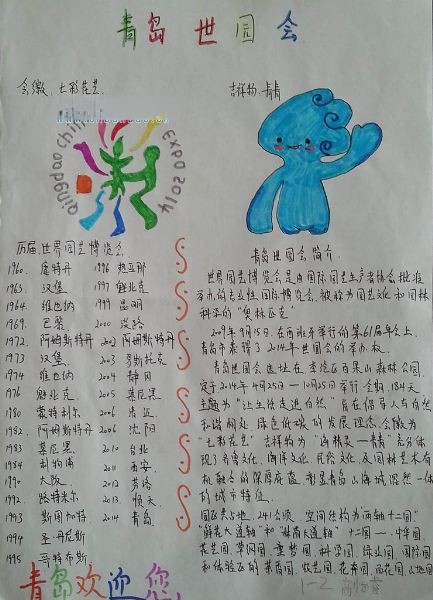 青岛世园会
会徽：七彩花艺
吉祥物：青青
qingdao china
EXPO2014
历届世界园艺博览会
1960. 鹿特丹 1996 热亚那
1963. 汉堡 1997 魁北克
1964. 维也纳 1999 昆明
1969. 巴黎 2000 淡路
1972. 阿姆斯特丹 2002 阿姆斯特丹
1973. 汉堡 2003 罗斯托克
1974 维也纳 2004 静冈
1976 魁北克 2005 慕尼黑
1980 蒙特利尔 2006 清迈
1982. 阿姆斯特丹 2006 沈阳
1983 慕尼黑 2010 台北
1984 利物浦 2011 西安
1990 大阪 2012 芬洛
1992. 路特米尔 2013 顺天
1993 斯图加特 2014 青岛
1994 圣丹尼斯
1995 哥特布斯
青岛世园会简介
世界园艺博览会是由国际园艺生产者协会批准
举办的专业性国际博览会，被称为园艺文化和园林
科学的“奥林匹克”
2009年9月15日，在西班牙举行的第61届年会上，
青岛市获得了2014年世园会的举办权。
青岛世园会选址在李沧区百果山森林公园，
定于2014年4月25日—10月25日举行，会期184天
主题为“让生活走进自然”旨在倡导人与自然
和谐相处，绿色低碳的发展理念，会徽为
“七彩花艺”吉祥物为“海精灵—青青”充分体
现了岛城文化、海洋文化、民俗文化及园林艺术有
机融合的深厚底蕴，彰显青岛山海城浑然一体
的城市特征。
园区共占地241公顷 空间结构为两轴十二园“
“鲜花大道轴”和“林荫大道轴” 十二园—中华园、
花艺园、草纲园、童梦园、科学园、绿业园、国际园
和体验区的茶香园、农艺园、花卉园、百花园、山地园
青岛欢迎您
1-2